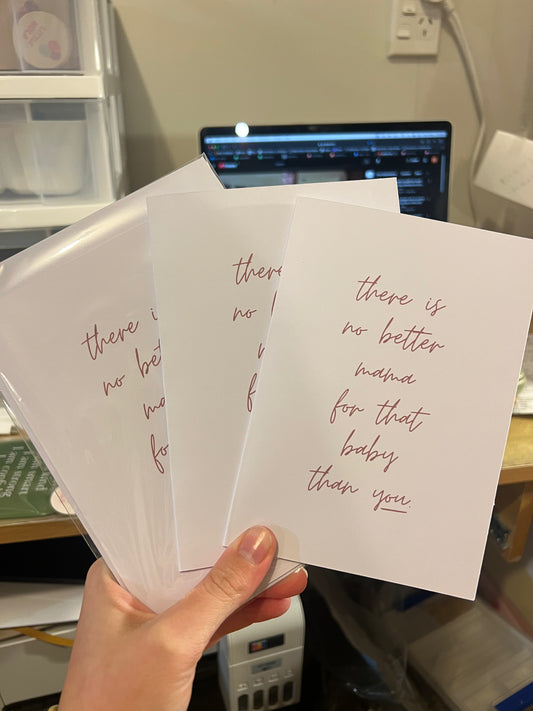 there is
no better
mama
for that
baby
than you.
there
no
there i
no bet
ma
fo